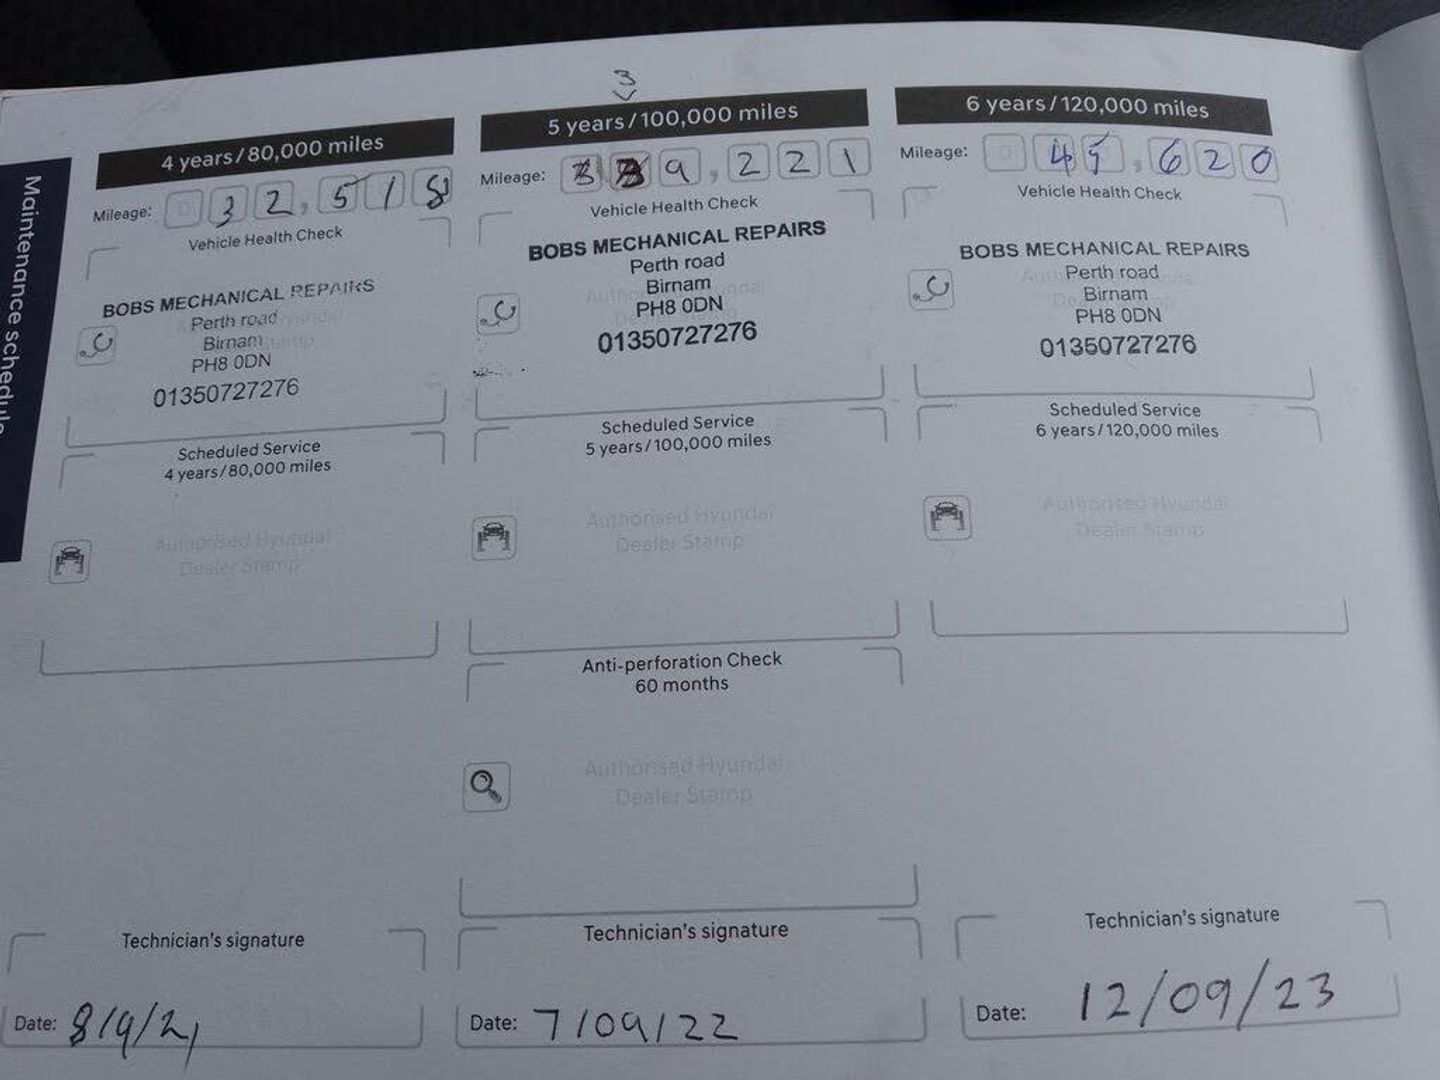 Maintenance schedule
4 years/80,000 miles
Mileage: 0 32,518
Vehicle Health Check
BOBS MECHANICAL REPAIRS
Perth road
Birnam
PH8 0DN
01350727276
Scheduled Service
4 years/80,000 miles
Authorised Hyundai
Dealer Stamp
Technician's signature
Date: 8/9/21
3
5 years/100,000 miles
Mileage: 9,221
Vehicle Health Check
BOBS MECHANICAL REPAIRS
Perth road
Birnam
PH8 0DN
01350727276
Scheduled Service
5 years/100,000 miles
Authorised Hyundai
Dealer Stamp
Anti-perforation Check
60 months
Authorised Hyundai
Dealer Stamp
Technician's signature
Date: 7/09/22
6 years/120,000 miles
Mileage: 0 45,620
Vehicle Health Check
BOBS MECHANICAL REPAIRS
Perth road
Birnam
PH8 0DN
01350727276
Scheduled Service
6 years/120,000 miles
Authorised Hyundai
Dealer Stamp
Technician's signature
Date: 12/09/23